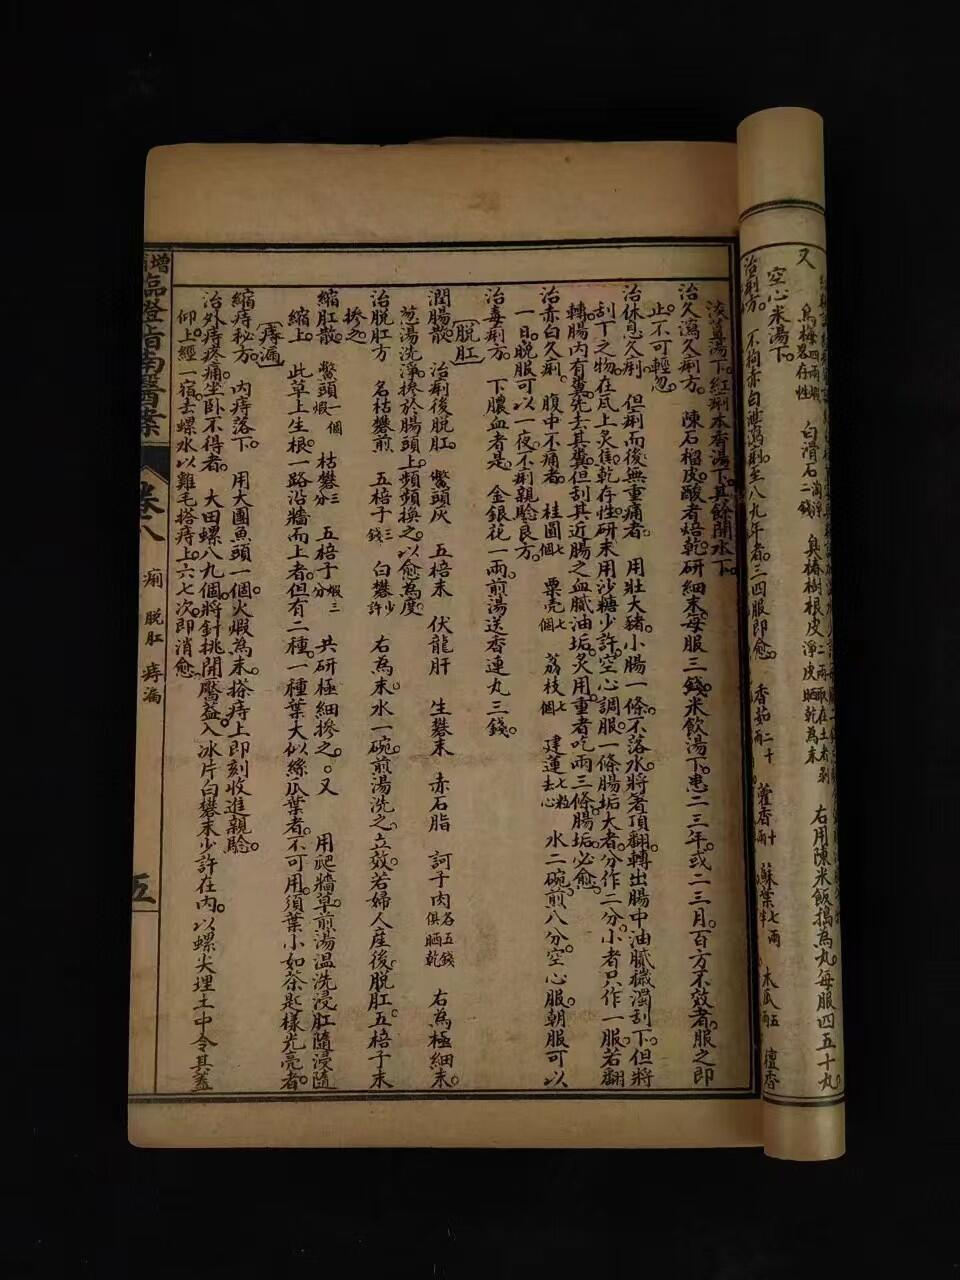 又
烏梅四兩煅畧存性　白滑石二錢淘淨　臭椿樹根皮淨皮晒乾為末　右用陳米飯搗為丸每服四五十丸。
空心米湯下。
治痢方。　不拘赤白泄瀉痢至八九年者。三四服即愈。　香茹二十　藿香十　蘇葉七兩　木瓜五　檀香
淡薑湯下。紅痢木香湯下。其餘開水下。
治久瀉久痢方。　陳石榴皮酸者焙乾。研細末。每服三錢。米飲湯下。患二三年或二三月。百方不效者。服之即
止。不可輕忽。
治休息久痢　但痢而後無重痛者　用壯大豬小腸一條。不落水。將箸頂翻轉出腸中油膩穢濁刮下。但將
刮下之物。在瓦上炙焦乾存性。研末。用沙糖少許。空心調服。一條腸垢大者。分作二分。小者只作一服。若翻
轉腸內有糞。先去其糞。但刮其近腸之血膩油垢。炙用。重者吃兩三條腸垢。必愈。
治赤白久痢。　腹中不痛者　桂圓七個　粟壳七個　荔枝七個　建蓮七粒去心　水二碗。煎八分。空心服。朝服可以
一日。晚服可以一夜。不痢。親驗良方。
治毒痢方。　下膿血者是。　金銀花一兩。煎湯送香連丸三錢。
脱肛
潤腸散　治痢後脱肛。　鱉頭灰　五棓末　伏龍肝　生礬末　赤石脂　訶子肉各五錢俱晒乾　右為極細末。
葱湯洗淨。摻於腸頭上。頻頻換之。以愈為度
治脱肛方　名枯礬煎　五棓子三錢　白礬少許　右為末。水一碗。煎湯洗之立效。若婦人產後脱肛。五棓子末
摻之。
縮肛散　鱉頭一個煅　枯礬三分　五棓子煅三分　共研極細摻之。○又　用爬牆草煎湯温洗浸肛隨浸隨
縮上。　此草上生根。一路沿牆而上者。但有二種。一種葉大似絲瓜葉者。不可用。須葉小如茶匙樣光亮者。
痔漏
縮痔秘方。　內痔落下。　用大團魚頭一個火煅為末。搭痔上即刻收進親驗。
治外痔疼痛。坐卧不得者。　大田螺八九個。將針挑開靨蓋。入冰片白礬末少許在內。以螺尖埋土中令其蓋
仰上。經一宿。去螺水以雞毛搭痔上。六七次。即消愈
增補臨證指南醫案
卷八
痢　脱肛　痔漏
五